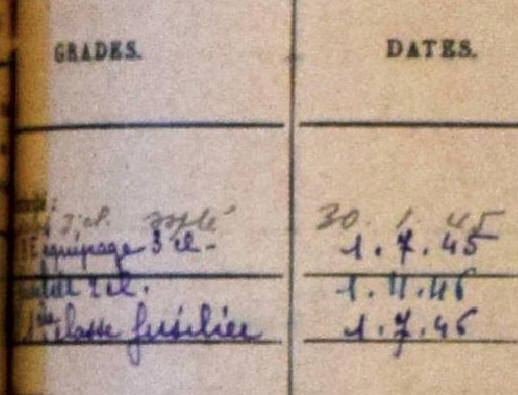 GRADES. DATES.
3 cl. 30. 1. 45
Équipage 3 cl. - 1. 7. 45
2 cl. 1. 11. 46
1ère classe fusilier 1. 7. 46